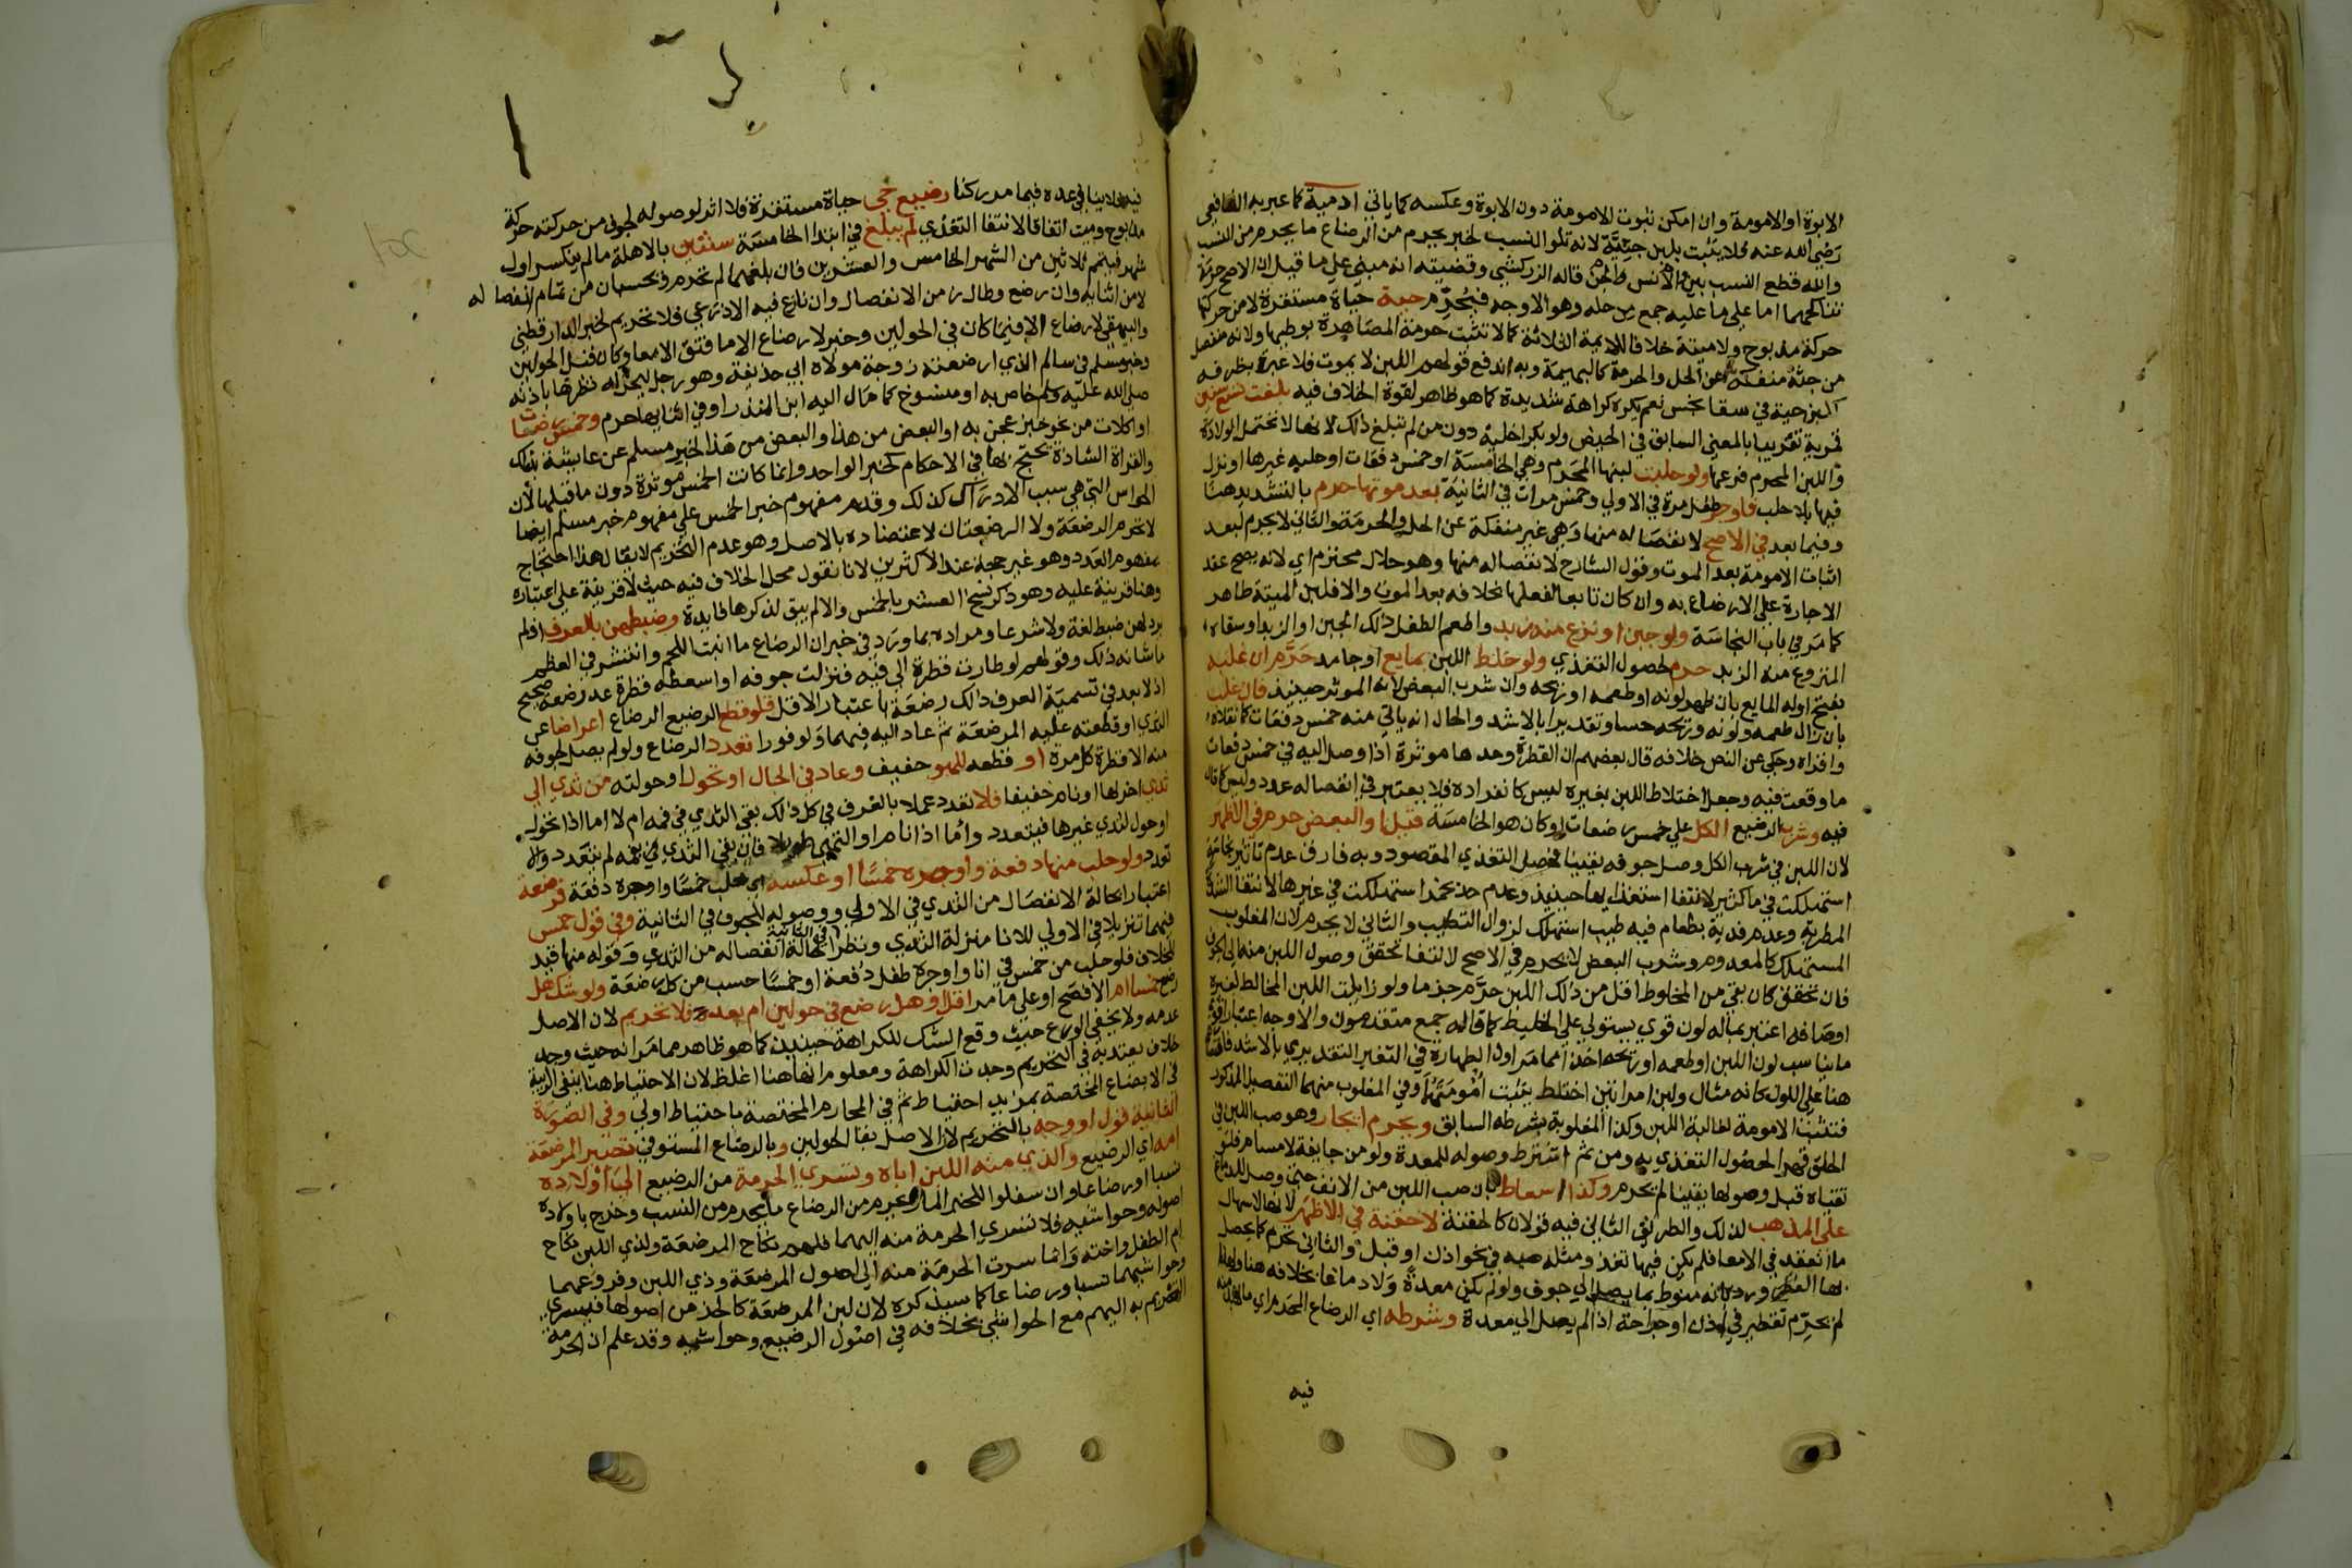 الابوة او الامومة وان امكن ثبوت الامومة دون الابوة وعكسه كما ياتي ادمية كما عبر به الشافعي
رضي الله عنه فلا يثبت بلبن جنية لانه تلو النسب لخبر يحرم من الرضاع ما يحرم من النسب
والله قطع النسب بين الانس والجن قاله الزركشي وقضيته انه مبني على ما قيل ان الاصح حرمة
تناكحهما اما على ما عليه جمع من حله وهو الاوجه فيحرم حية حياة مستقرة لا من حركتها
حركة مذبوح ولا ميتة خلافا للايمة الثلاثة كما لا تثبت حرمة المصاهرة بوطيها ولانه منفصل
من جثة منفكة عن الحل والحرمة كالبهيمة وبه اندفع قولهم اللبن لا يموت فلا عبرة بظرفه
كلبن حية في سقا نجس نعم يكره كراهة شديدة كما هو ظاهر لقوة الخلاف فيه بلغت تسع سنين
قمرية تقريبا بالمعنى السابق في الحيض ولو بكرا خلية دون من لم تبلغ ذلك لانها لا تحتمل الولادة
واللبن المحرم فرعها ولو حلبت لبنها المحرم وهي الخامسة او خمس دفعات او حلبه غيرها او نزل
فيها بلا حلب فاوجر طفل مرة في الاولى وخمس مرات في الثانية بعد موتها حرم بالتشديد هنا
وفيما بعد في الاصح لانفصاله منها وهي غير منفكة عن الحل والحرمة والثاني لا يحرم لبعد
اثبات الامومة بعد الموت وقول الشارح لانفصاله منها وهو حلال محترم اي لانه يصح عقد
الاجارة على الارضاع به وان كان تابعا لفعلها بخلافه بعد الموت والا فلبن الميتة طاهر
كما مر في باب النجاسة ولو جبن او نزع منه زبد واطعم الطفل ذلك الجبن او الزبد او سقاه
المنزوع منه الزبد حرم لحصول التغذي ولو خلط اللبن بمايع او جامد حرم ان غلب
بفتح اوله المايع بان ظهر لونه او طعمه او ريحه وان شرب البعض لانه الموثر حينيذ فان غلب
بان زال طعمه ولونه وريحه حسا وتقديرا بالاشد والحال انه ياتي منه خمس دفعات كما نقلاه
واقراه وحكى عن النص خلافه قال بعضهم ان القطرة وحدها موثرة اذا وصل اليه في خمس دفعات
ما وقعت فيه وجعل اختلاط اللبن بغيره ليس كانفراده فلا يعتبر في انفصاله عدد وليس كما قال
فيه وشرب الرضيع الكل على خمس رضعات او كان هو الخامسة قيل او البعض حرم في الاظهر
لان اللبن في شرب الكل وصل جوفه يقينا فحصل التغذي المقصود وبه فارق عدم تاثير نجاسة
استهلكت في ما كثير لانتفا استقذارها حينيذ وعدم حد بخمر استهلكت في غيرها لانتفا الشدة
المطربة وعدم فدية بطعام فيه طيب استهلك لزوال التطيب والثاني لا يحرم لان المغلوب
المستهلك كالمعدوم وشرب البعض لا يحرم في الاصح لانتفا تحقق وصول اللبن منه الى الجوف
فان تحقق كان بقي من المخلوط اقل من ذلك اللبن حرم جزما ولو زايلت اللبن المخالط لغيره
اوصافه اعتبر بماله لون قوي يستولي على الخليط كما قاله جمع متقدمون والاوجه اعتبار اقوى
ما يناسب لون اللبن او طعمه او ريحه اخذا مما مر اول الطهارة في التغير التقديري بالاشد
هنا على اللون كانه مثال ولبن امراتين اختلط يثبت امومتهما وفي المغلوب منهما التفصيل المذكور
فتثبت الامومة لغالبة اللبن وكذا المغلوبة بشرطه السابق ويحرم ايجار وهو صب اللبن في
الحلق قهرا لحصول التغذي به ومن ثم اشترط وصوله للمعدة ولو من جايفة لا مسام فلو
تقياه قبل وصولها يقينا لم يحرم وكذا اسعاط بان صب اللبن من الانف حتى وصل للدماغ
على المذهب لذلك والطريق الثاني فيه قولان كالحقنة لا حقنة في الاظهر لانها لاسهال
ما انعقد في الامعا فلم يكن فيها تغذ ومثله صبه في نحو اذن او قبل والثاني تحرم كما يحصل
بها الفطر ورد بانه منوط بما يصل الى جوف ولو لم يكن معدة ولا دماغا بخلافه هنا ولهذا
لم يحرم تقطير في اذن او جراحة اذا لم يصل الى معدة وشرطه اي الرضاع المحرم اي ما لا بد منه
فيه
فيه فلا ينافي عده فيما مر ركنا رضيع حي حياة مستقرة فلا اثر لوصوله لجوف من حركته حركة
مذبوح وميت اتفاقا لانتفا التغذي لم يبلغ في ابتدا الخامسة سنتين بالاهلة ما لم ينكسر اول
شهر فيتمم ثلاثين من الشهر الخامس والعشرين فان بلغهما لم تحرم ويحسبان من تمام انفصاله
لا من اثنايه وان رضع وطال زمن الانفصال وان نازع فيه الاذرعي فلا تحريم لخبر الدارقطني
والبيهقي لا رضاع الا فيما كان في الحولين وخبر لا رضاع الا ما فتق الامعا وكان قبل الحولين
وخبر مسلم في سالم الذي ارضعته زوجة مولاه ابي حذيفة وهو رجل ليحل له نظرها باذنه
صلى الله عليه وسلم خاص به او منسوخ كما مال اليه ابن المنذر او في اثنايها حرم وخمس رضعات
او اكلات من نحو خبز عجن به او البعض من هذا والبعض من هذا لخبر مسلم عن عايشة بذلك
والقراة الشاذة يحتج بها في الاحكام كخبر الواحد وانما كانت الخمس موثرة دون ما قبلها لان
الحواس التي هي سبب الادراك كذلك وقدم مفهوم خبر الخمس على مفهوم خبر مسلم ايضا
لا تحرم الرضعة ولا الرضعتان لاعتضاده بالاصل وهو عدم التحريم لا يقال هذا احتجاج
بمفهوم العدد وهو غير حجة عند الاكثرين لانا نقول محل الخلاف فيه حيث لا قرينة على اعتباره
وهنا قرينة عليه وهو ذكر نسخ العشر بالخمس والا لم يبق لذكرها فايدة وضبطهن بالعرف اذ لم
يرد لهن ضبط لغة ولا شرعا ومراده بما ورد في خبر ان الرضاع ما انبت اللحم وانتشر في العظم
ما شانه ذلك وقولهم لو طارت قطرة الى فيه فنزلت جوفه او اسعطه قطرة عد رضعة صحيح
اذ لا بعد في تسمية العرف ذلك رضعة باعتبار الاقل فلو قطع الرضيع الرضاع اعراضا عن
الثدي او قطعته عليه المرضعة ثم عاد اليه فيهما ولو فورا تعدد الرضاع ولو لم يصل لجوفه
منه الا قطرة كل مرة او قطعه للهو خفيف وعاد في الحال او تحول او حولته من ثدي الى
ثدي اخر لها او نام خفيفا فلا تعدد عملا بالعرف في كل ذلك بقي الثدي في فمه ام لا اما اذا تحول
او حول لثدي غيرها فيتعدد واما اذا نام او التهى طويلا فان بقي الثدي في فمه لم يتعدد والا
تعدد ولو حلب منها دفعة واوجره خمسا او عكسه اي حلب خمسا واوجره دفعة فرضعة
اعتبارا بحالة الانفصال من الثدي في الاولى ووصوله للجوف في الثانية وفي قول خمس
فيهما تنزيلا في الاولى للانا منزلة الثدي ونظرا في الثانية لحالة انفصاله من الثدي وقوله منها قيد
للخلاف فلو حلب من خمس في انا واوجره طفل دفعة او خمسا حسب من كل رضعة ولو شك هل
رضع خمسا ام اقل او هل رضع في حولين ام بعد فلا تحريم لان الاصل
عدمه ولا يخفى الورع حيث وقع الشك للكراهة حينيذ كما هو ظاهر مما مر انه حيث وجد
خلاف يعتد به في التحريم وجدت الكراهة ومعلوم انها هنا اغلظ لان الاحتياط هنا ينفي الريبة
في الابضاع المختصة بمزيد احتياط ثم في المحارم المختصة باحتياط اولى وفي الصورة
الثانية قول او وجه بالتحريم لان الاصل بقا الحولين وبالرضاع المستوفي تصير المرضعة
امه اي الرضيع والذي منه اللبن اباه وتسري الحرمة من الرضيع الى اولاده
نسبا او رضاعا وان سفلوا للخبر المار يحرم من الرضاع ما يحرم من النسب وخرج باولاده
اصوله وحواشيه فلا تسري الحرمة منه اليهما فلهم نكاح المرضعة ولذي اللبن نكاح
ام الطفل واخته وانما سرت الحرمة منه الى اصول المرضعة وذي اللبن وفروعهما
وحواشيهما نسبا ورضاعا كما سيذكره لان لبن المرضعة كالجزء من اصولها فيسري
التحريم به اليهم مع الحواشي بخلافه في اصول الرضيع وحواشيه وقد علم ان الحرمة